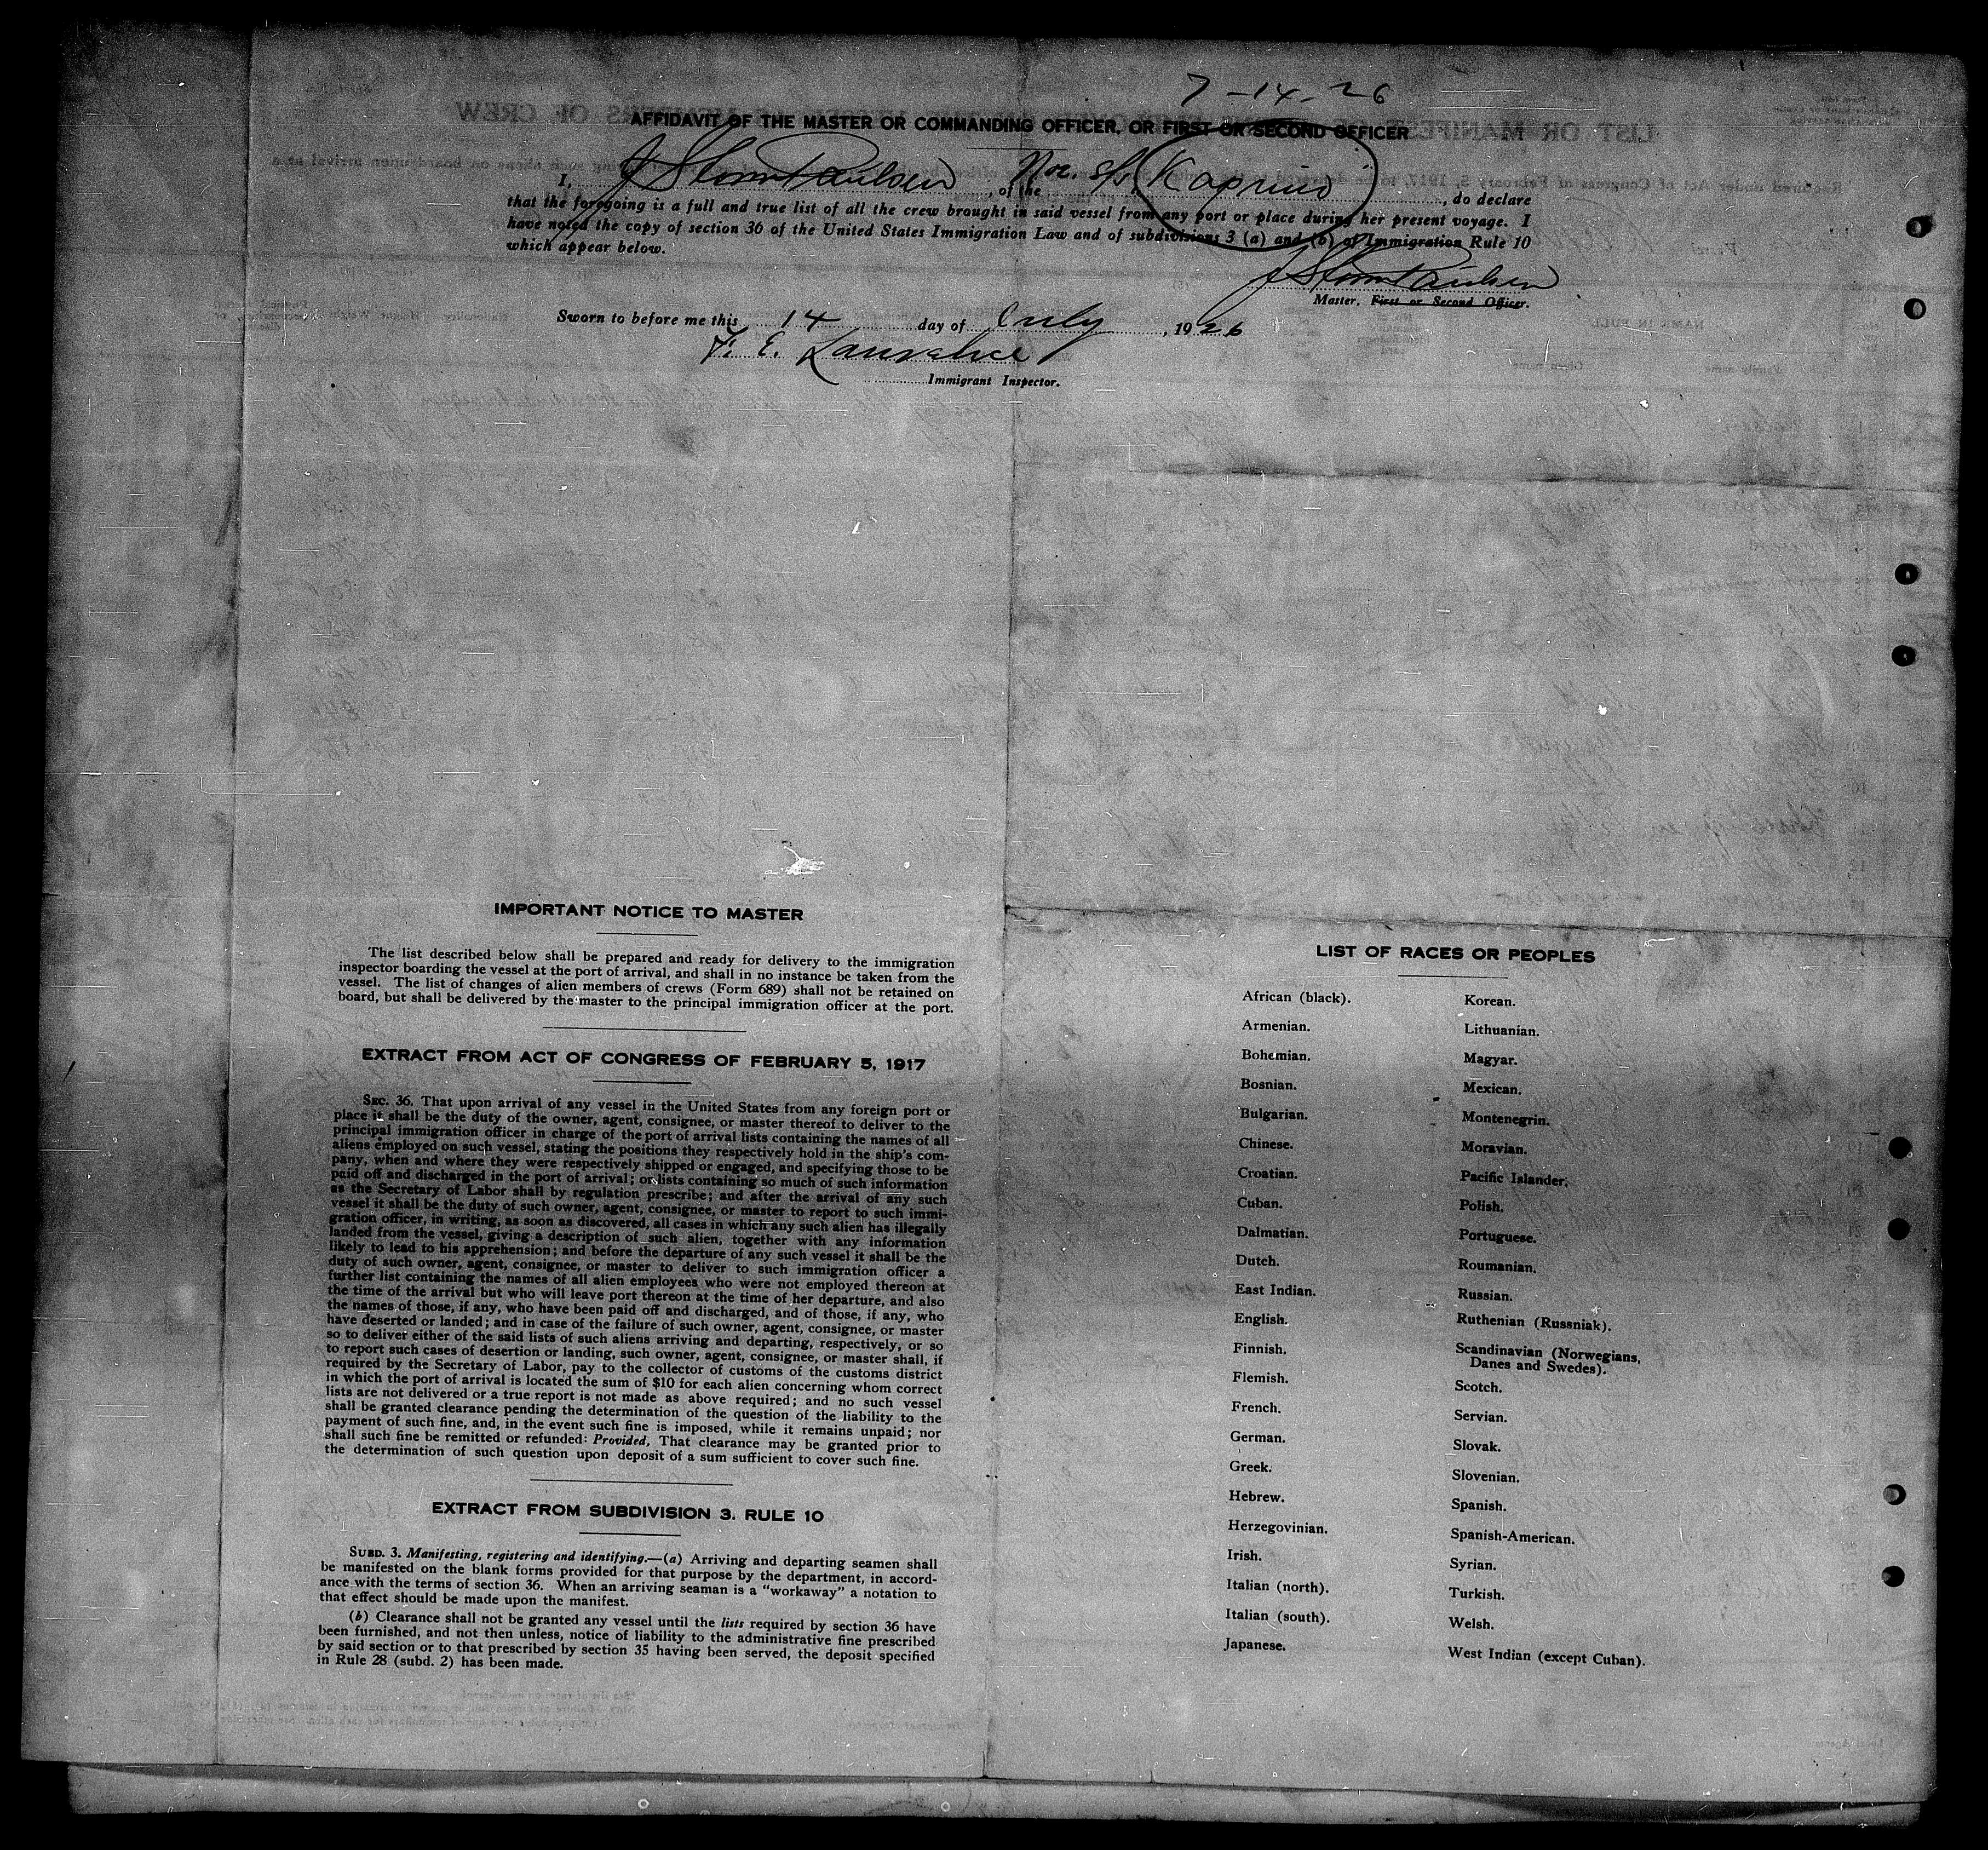 7-14-26
AFFIDAVIT OF THE MASTER OR COMMANDING OFFICER, OR FIRST OR SECOND OFFICER
I, J Storm Paulsen, of the Nor. s/s Kaprino, do declare
that the foregoing is a full and true list of all the crew brought in said vessel from any port or place during her present voyage. I
have noted the copy of section 36 of the United States Immigration Law and of subdivisions 3 (a) and (b) of Immigration Rule 10
which appear below.
J Storm Paulsen
Master, First or Second Officer.
Sworn to before me this 14 day of July, 1926
F. E. Lawrence
Immigrant Inspector.
IMPORTANT NOTICE TO MASTER
The list described below shall be prepared and ready for delivery to the immigration
inspector boarding the vessel at the port of arrival, and shall in no instance be taken from the
vessel. The list of changes of alien members of crews (Form 689) shall not be retained on
board, but shall be delivered by the master to the principal immigration officer at the port.
EXTRACT FROM ACT OF CONGRESS OF FEBRUARY 5, 1917
SEC. 36. That upon arrival of any vessel in the United States from any foreign port or
place it shall be the duty of the owner, agent, consignee, or master thereof to deliver to the
principal immigration officer in charge of the port of arrival lists containing the names of all
aliens employed on such vessel, stating the positions they respectively hold in the ship's com-
pany, when and where they were respectively shipped or engaged, and specifying those to be
paid off and discharged in the port of arrival; or lists containing so much of such information
as the Secretary of Labor shall by regulation prescribe; and after the arrival of any such
vessel it shall be the duty of such owner, agent, consignee, or master to report to such immi-
gration officer, in writing, as soon as discovered, all cases in which any such alien has illegally
landed from the vessel, giving a description of such alien, together with any information
likely to lead to his apprehension; and before the departure of any such vessel it shall be the
duty of such owner, agent, consignee, or master to deliver to such immigration officer a
further list containing the names of all alien employees who were not employed thereon at
the time of the arrival but who will leave port thereon at the time of her departure, and also
the names of those, if any, who have been paid off and discharged, and of those, if any, who
have deserted or landed; and in case of the failure of such owner, agent, consignee, or master
so to deliver either of the said lists of such aliens arriving and departing, respectively, or so
to report such cases of desertion or landing, such owner, agent, consignee, or master shall, if
required by the Secretary of Labor, pay to the collector of customs of the customs district
in which the port of arrival is located the sum of $10 for each alien concerning whom correct
lists are not delivered or a true report is not made as above required; and no such vessel
shall be granted clearance pending the determination of the question of the liability to the
payment of such fine, and, in the event such fine is imposed, while it remains unpaid; nor
shall such fine be remitted or refunded: Provided, That clearance may be granted prior to
the determination of such question upon deposit of a sum sufficient to cover such fine.
EXTRACT FROM SUBDIVISION 3. RULE 10
SUBD. 3. Manifesting, registering and identifying.—(a) Arriving and departing seamen shall
be manifested on the blank forms provided for that purpose by the department, in accord-
ance with the terms of section 36. When an arriving seaman is a "workaway" a notation to
that effect should be made upon the manifest.
(b) Clearance shall not be granted any vessel until the lists required by section 36 have
been furnished, and not then unless, notice of liability to the administrative fine prescribed
by said section or to that prescribed by section 35 having been served, the deposit specified
in Rule 28 (subd. 2) has been made.
LIST OF RACES OR PEOPLES
African (black).
Armenian.
Bohemian.
Bosnian.
Bulgarian.
Chinese.
Croatian.
Cuban.
Dalmatian.
Dutch.
East Indian.
English.
Finnish.
Flemish.
French.
German.
Greek.
Hebrew.
Herzegovinian.
Irish.
Italian (north).
Italian (south).
Japanese.
Korean.
Lithuanian.
Magyar.
Mexican.
Montenegrin.
Moravian.
Pacific Islander.
Polish.
Portuguese.
Roumanian.
Russian.
Ruthenian (Russniak).
Scandinavian (Norwegians,
Danes and Swedes).
Scotch.
Servian.
Slovak.
Slovenian.
Spanish.
Spanish-American.
Syrian.
Turkish.
Welsh.
West Indian (except Cuban).